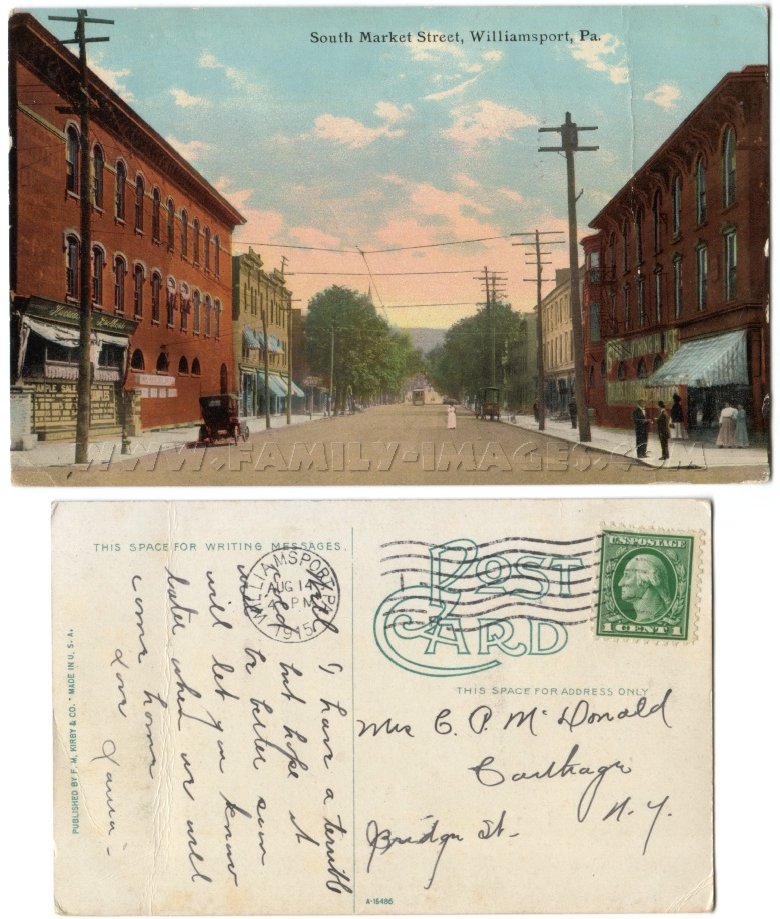 South Market Street, Williamsport, Pa.
SAMPLE SALE
WWW.FAMILY-IMAGES.COM
THIS SPACE FOR WRITING MESSAGES.
WILLIAMSPORT, PA.
AUG 14
4 PM
1915
POST CARD
U.S. POSTAGE
1 CENT 1
THIS SPACE FOR ADDRESS ONLY
Mrs C. P. McDonald
Carthage
N.Y.
Bridge St.
I have a terrible
cold but hope it
will be better soon
will let you know
later when we will
come home
Love Laura -
PUBLISHED BY F. M. KIRBY & CO. MADE IN U.S.A.
A-15486